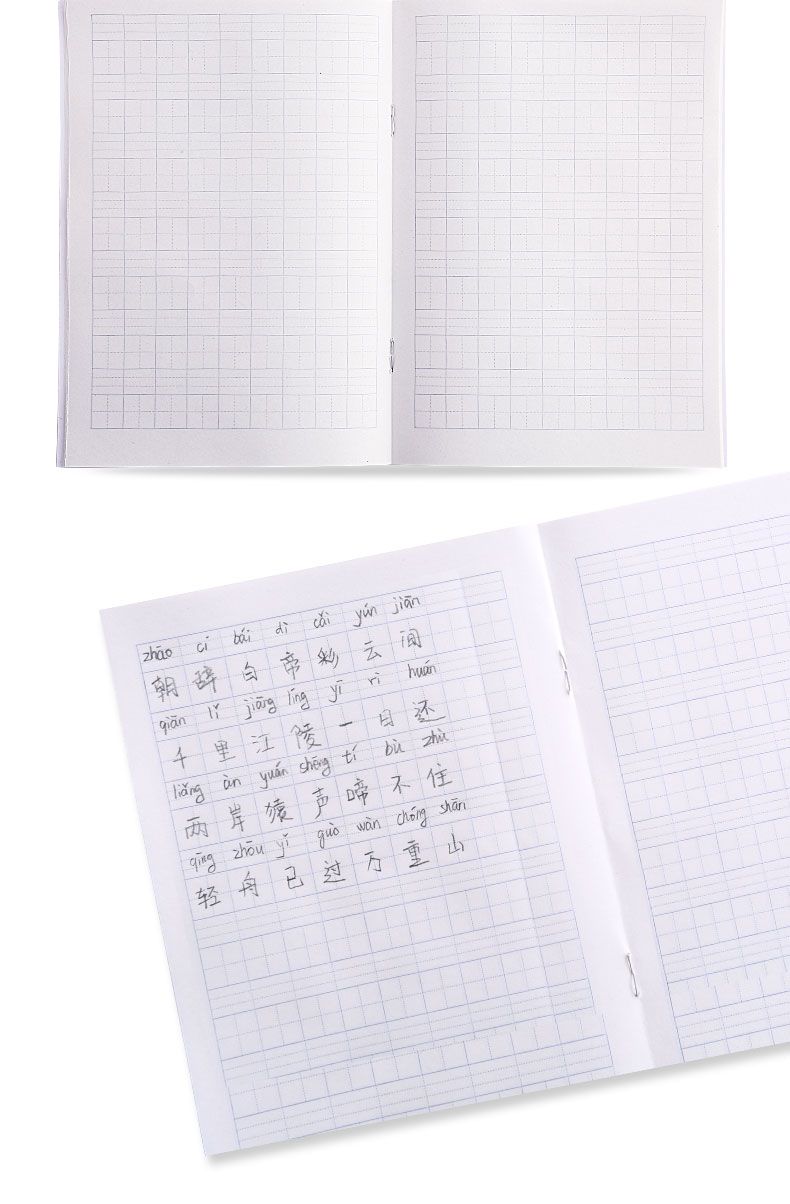 zhāo cí bái dì cǎi yún jiān
朝辞白帝彩云间
qiān lǐ jiāng líng yī rì huán
千里江陵一日还
liǎng àn yuán shēng tí bù zhù
两岸猿声啼不住
qīng zhōu yǐ guò wàn chóng shān
轻舟已过万重山